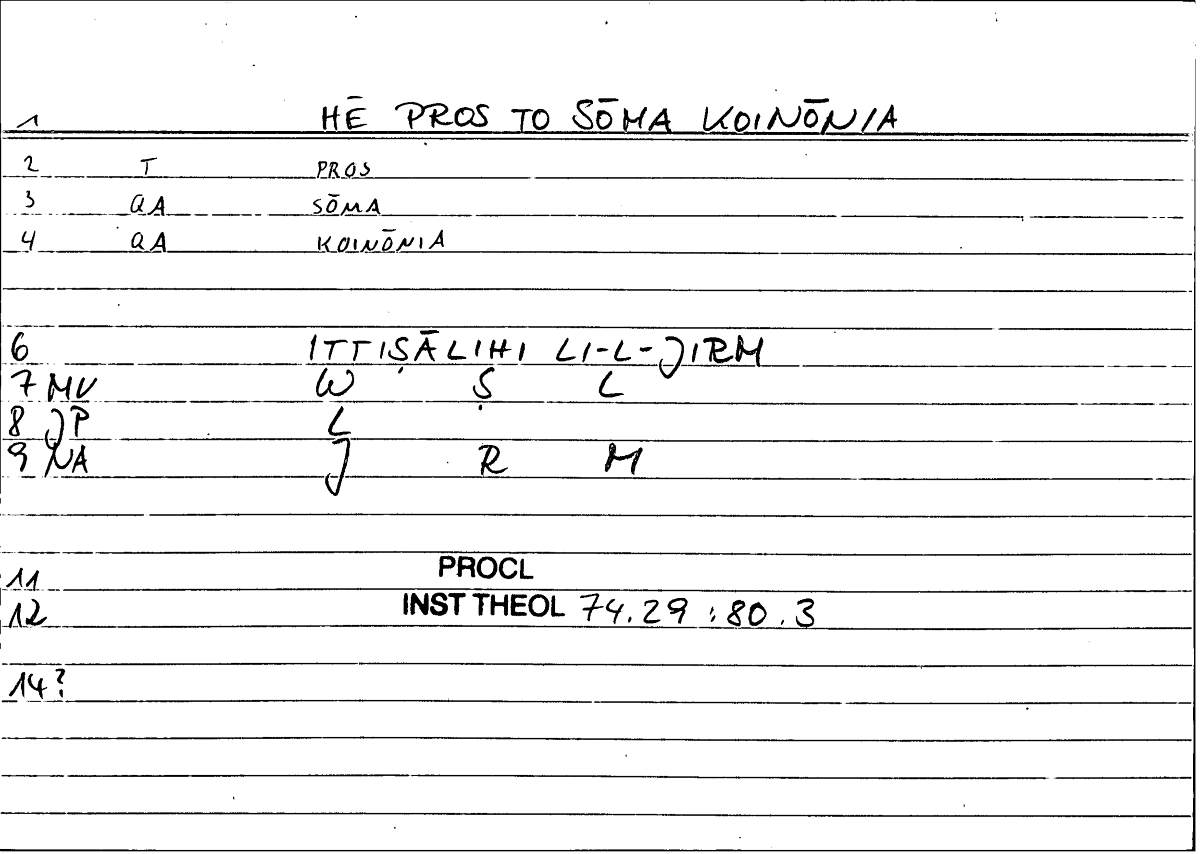 1 HĒ PROS TO SŌMA KOINŌNIA
2 T PROS
3 QA SŌMA
4 QA KOINŌNIA
6 ITTIṢĀLIHI LI-L-JIRM
7 MV W Ṣ L
8 JP L
9 NA J R M
11 PROCL
12 INST THEOL 74.29 : 80.3
14?